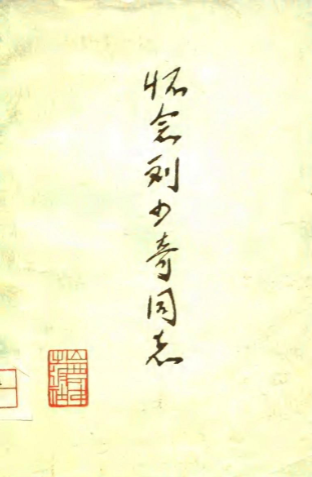 怀念刘少奇同志